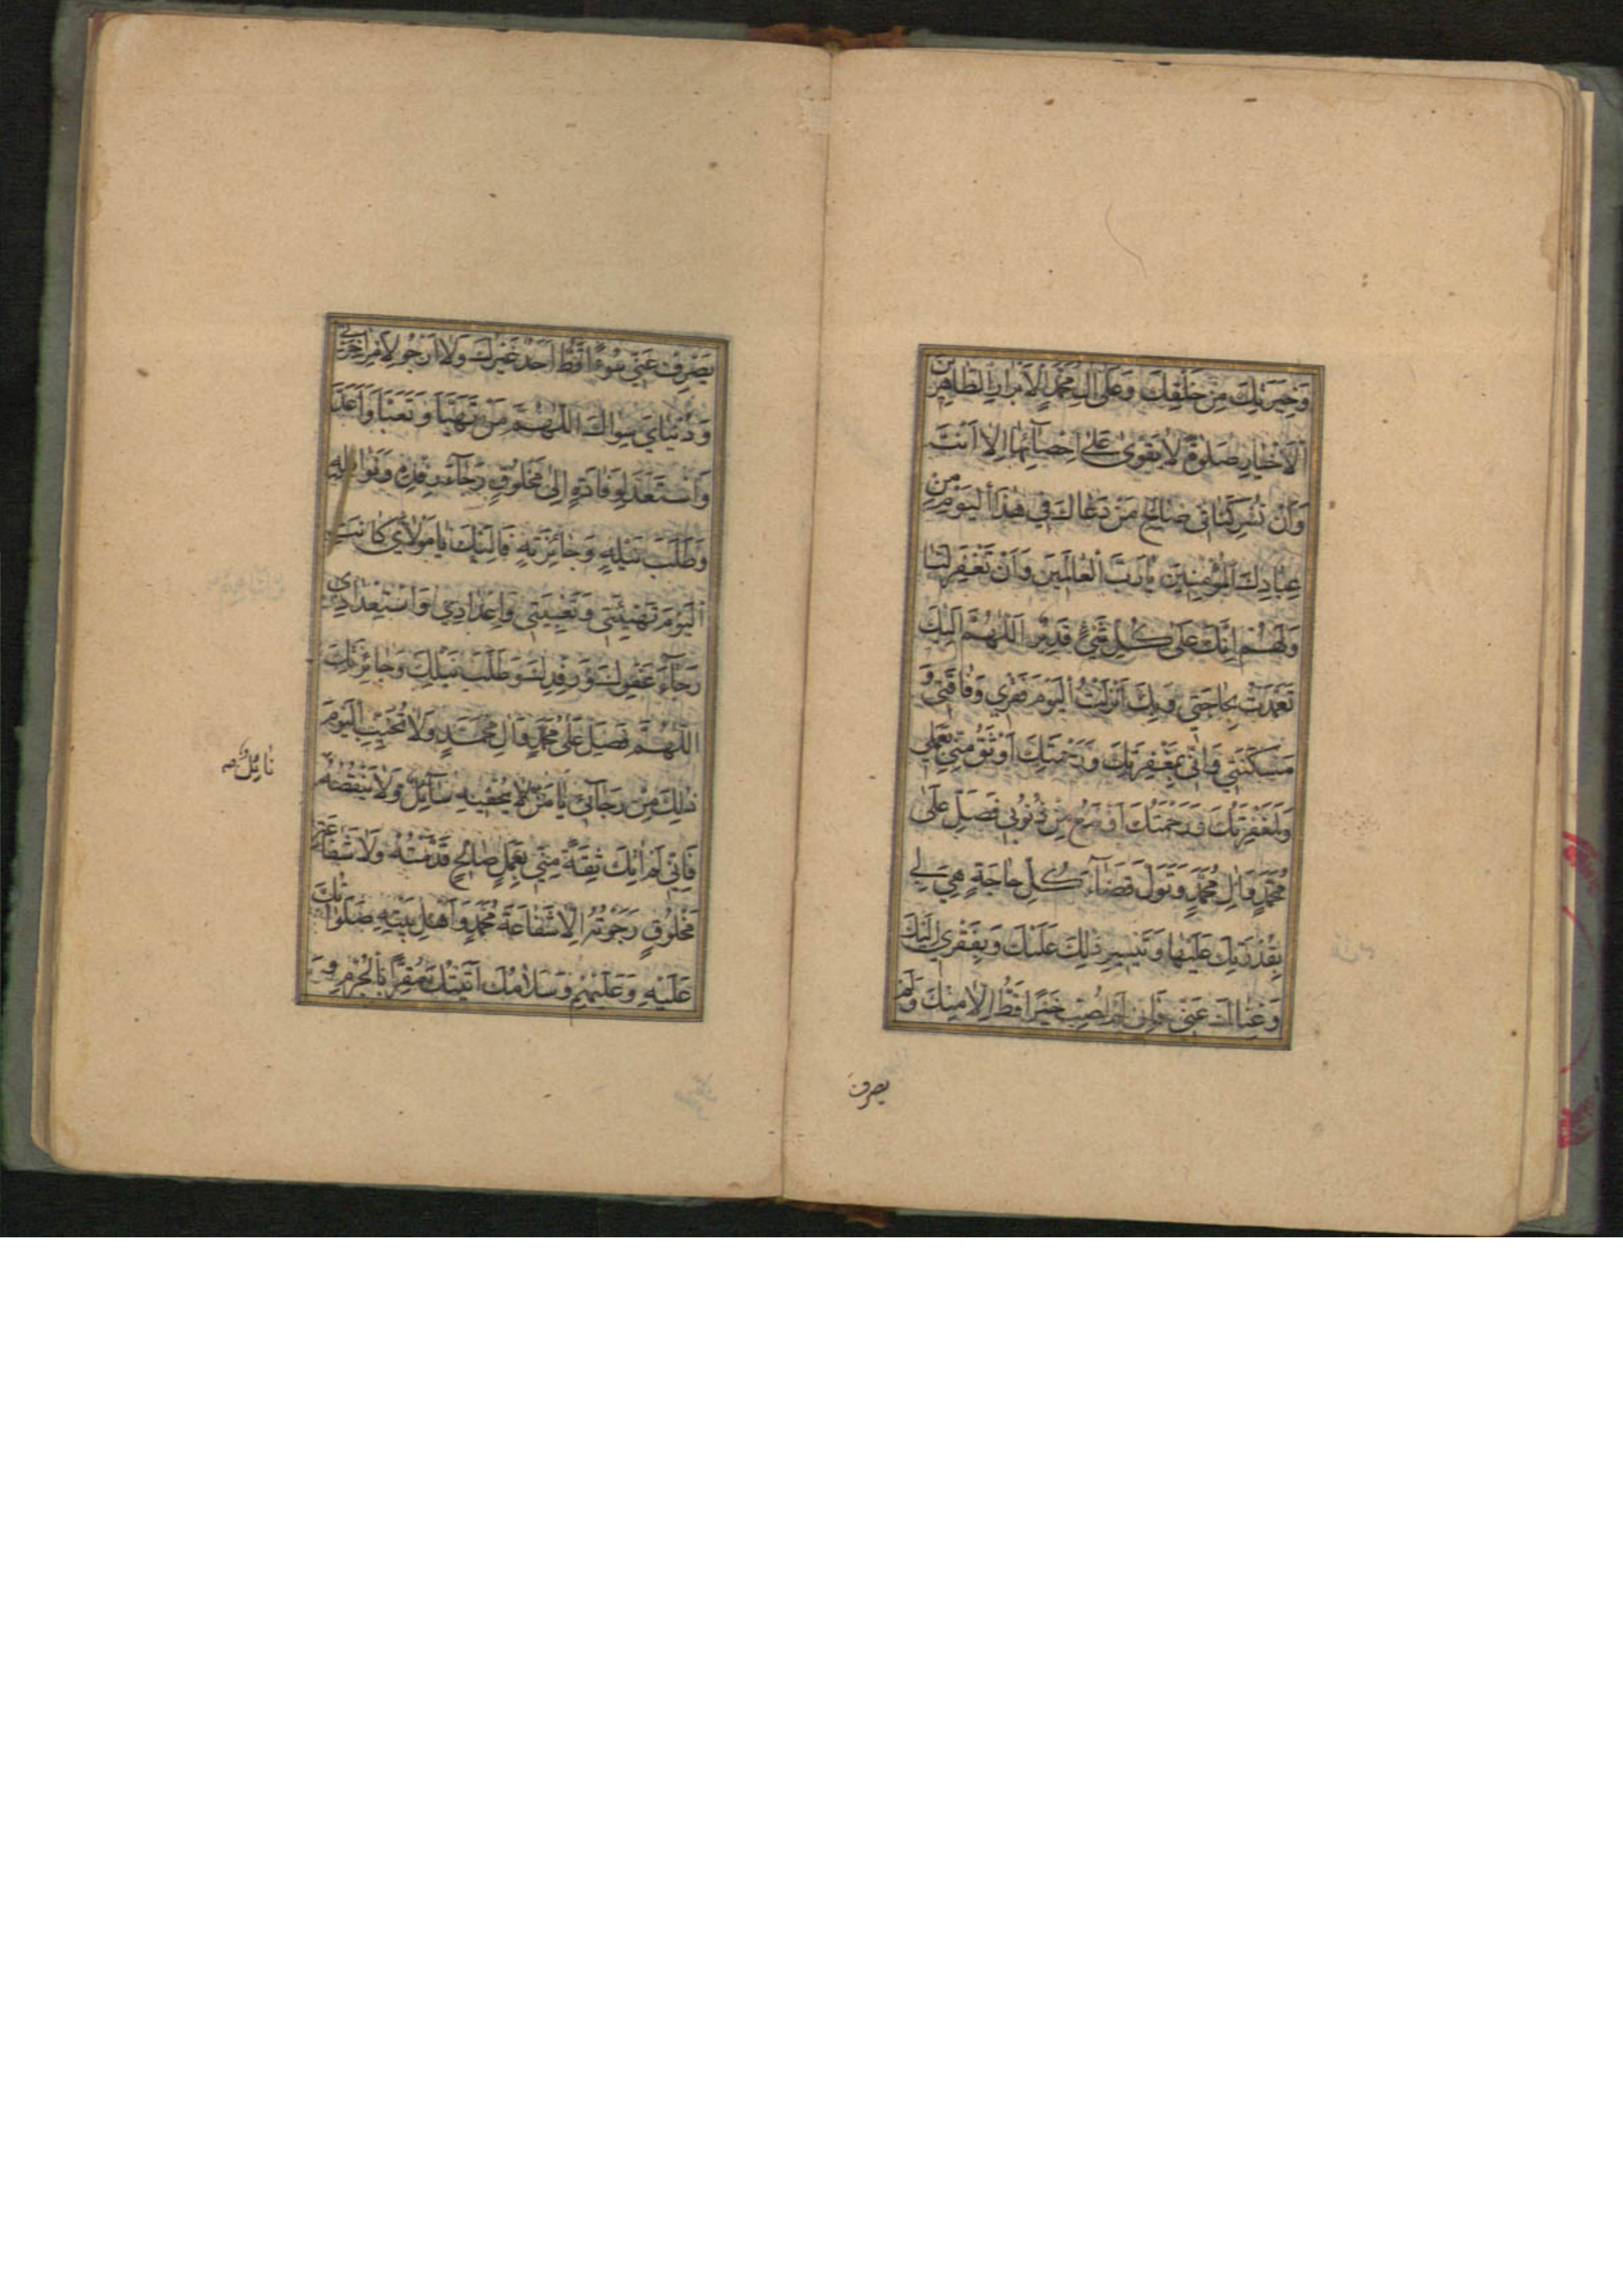 وَخِيَرَتِكَ مِنْ خَلْقِكَ وَعَلَى اٰلِ مُحَمَّدٍ الْاَبْرَارِ الطَّاهِرِينَ
الْاَخْيَارِ صَلٰوةً لَا يَقْوٰى عَلٰى اِحْصَآئِهَا اِلَّا اَنْتَ
وَاَنْ تُشْرِكَنَا فِي صَالِحِ مَنْ دَعَاكَ فِي هٰذَا الْيَوْمِ مِنْ
عِبَادِكَ الْمُؤْمِنِينَ يَا رَبَّ الْعَالَمِينَ وَاَنْ تَغْفِرَ لَنَا
وَلَهُمْ اِنَّكَ عَلٰى كُلِّ شَيْءٍ قَدِيرٌ اَللّٰهُمَّ اِلَيْكَ
تَعَمَّدْتُ بِحَاجَتِي وَبِكَ اَنْزَلْتُ الْيَوْمَ فَقْرِي وَفَاقَتِي وَ
مَسْكَنَتِي فَاِنِّي بِمَغْفِرَتِكَ وَرَحْمَتِكَ اَوْثَقُ مِنِّي بِعَمَلِي
وَلَمَغْفِرَتُكَ وَرَحْمَتُكَ اَوْسَعُ مِنْ ذُنُوبِي فَصَلِّ عَلٰى
مُحَمَّدٍ وَاٰلِ مُحَمَّدٍ وَتَوَلَّ قَضَآءَ كُلِّ حَاجَةٍ هِيَ لِي
بِقُدْرَتِكَ عَلَيْهَا وَتَيْسِيرِ ذٰلِكَ عَلَيْكَ وَبِفَقْرِي اِلَيْكَ
وَغِنَاكَ عَنِّي فَاِنِّي لَمْ اُصِبْ خَيْرًا قَطُّ اِلَّا مِنْكَ وَلَمْ
يصرف
يَصْرِفْ عَنِّي سُوءًا قَطُّ اَحَدٌ غَيْرُكَ وَلَا اَرْجُو لِاَمْرِ اٰخِرَتِي
وَدُنْيَايَ سِوَاكَ اَللّٰهُمَّ مَنْ تَهَيَّاَ وَتَعَبَّاَ وَاَعَدَّ
وَاسْتَعَدَّ لِوِفَادَةٍ اِلٰى مَخْلُوقٍ رَجَآءَ رِفْدِهِ وَنَوَافِلِهِ
وَطَلَبَ نَيْلِهِ وَجَائِزَتِهِ فَاِلَيْكَ يَا مَوْلَايَ كَانَتِ
الْيَوْمَ تَهْيِئَتِي وَتَعْبِيَتِي وَاِعْدَادِي وَاسْتِعْدَادِي
رَجَآءَ عَفْوِكَ وَرِفْدِكَ وَطَلَبَ نَيْلِكَ وَجَائِزَتِكَ
اَللّٰهُمَّ فَصَلِّ عَلٰى مُحَمَّدٍ وَاٰلِ مُحَمَّدٍ وَلَا تُخَيِّبِ الْيَوْمَ
ذٰلِكَ مِنْ رَجَآئِي يَا مَنْ لَا يُحْفِيهِ سَآئِلٌ وَلَا يَنْقُصُهُ
نَائِلٌ
فَاِنِّي لَمْ اٰتِكَ ثِقَةً مِنِّي بِعَمَلٍ صَالِحٍ قَدَّمْتُهُ وَلَا شَفَاعَةِ
مَخْلُوقٍ رَجَوْتُهُ اِلَّا شَفَاعَةَ مُحَمَّدٍ وَاَهْلِ بَيْتِهِ صَلَوَاتُكَ
عَلَيْهِ وَعَلَيْهِمْ وَسَلَامُكَ اَتَيْتُكَ مُقِرًّا بِالْجُرْمِ وَ